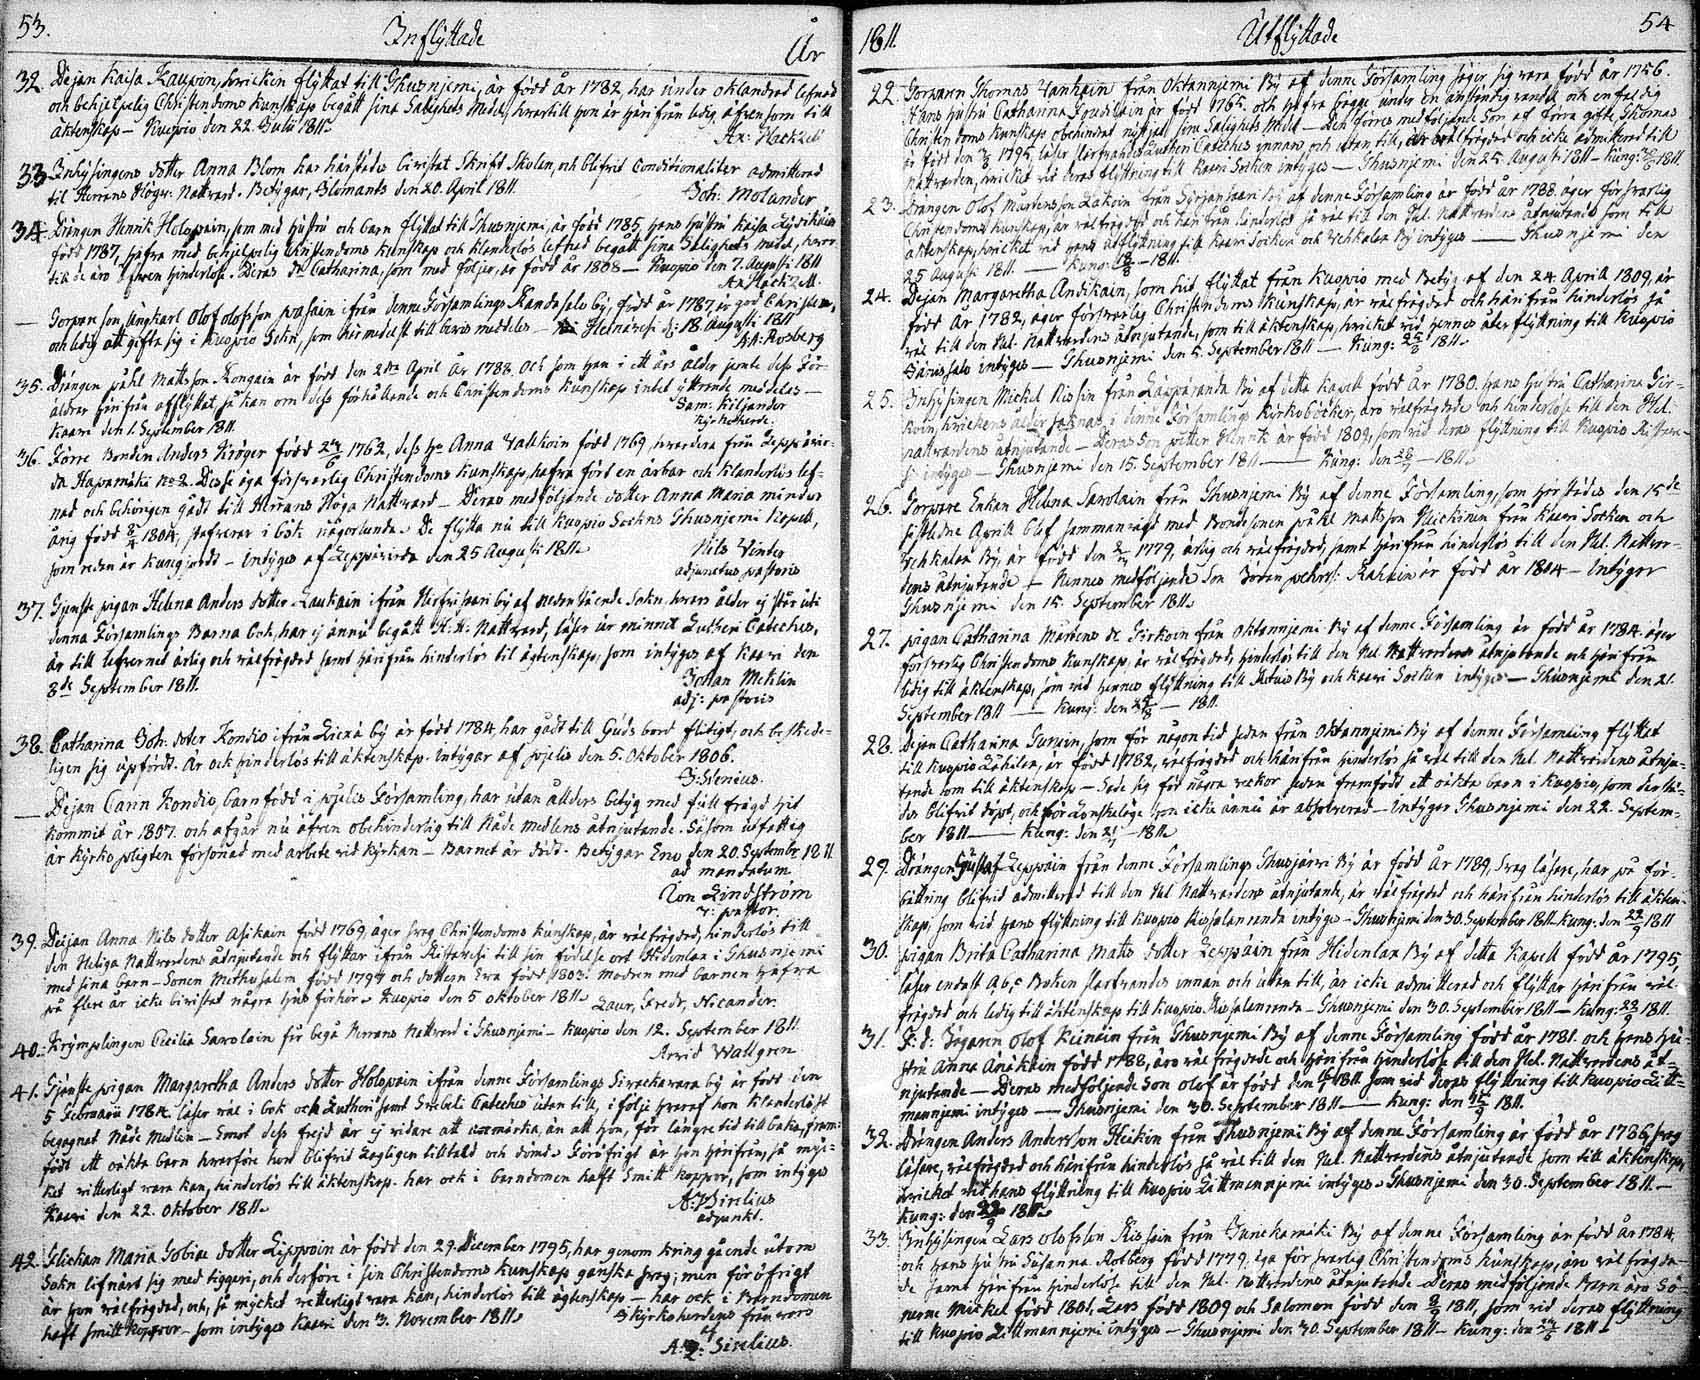 53.
Inflyttade
År
32. Dejan Kaisa Kaupin, hvilken flyttat till Thusnjemi, är född år 1782 har under oklandrad lefnad
och behjelpelig Christendoms kunskap begått sina Salighets Medel, hvartill hon är härifrån ledig äfven som till
äktenskap — Kuopio den 22. Julii 1811.
Ax: Hackzell
33 Inhysingens dotter Anna Blom har härstädes bevistat Skrift Skolan, och blifvit Conditionaliter admitterad
til Herrans Högv: Nattvard. Betygar, Ilomants den 20. April 1811.
Joh: Molander
34 Drängen Henrik Holopain, som med hustru och barn flyttat till Thusnjemi, är född 1785, hans hustru Kaisa
född 1787, hafva med behjelpelig Christendoms kunskap och klanderlös lefnad begått sina Salighets medel, hvar-
till de äro äfven hinderlöse. Deras dr Catharina, som med följer, är född år 1808 — Kuopio den 7. Augusti 1811
Ax Hackzell.
— Torpare son, Ungkarl Olof Olofsson Pasain ifrån denne Församlings Kandasalo by, född år 1787, är god Christen,
och ledig att gifta sig i Kuopio Sokn, som härmedelst till bevis meddeles — Heinävesi d: 18. Augusti 1811
A:A: Rosberg
35. Drängen Påhl Mattsson Kongain är född den 2dra April år 1788. Och som han i ett års ålder jemte dess För-
äldrar härifrån afflyttat, så kan om dess förhållande och Christendoms kunskap intet yttrande meddelas —
Kaavi den 1. September 1811.
Sam: Kiljander
Kyrkoherde.
36. Förre Bonden Anders Kröger född 24/6 1762, dess Hu Anna Vallkoin född 1769, hvardera från Leppävir-
ta Hapamäki No 2. Desse äga försvarlig Christendoms kunskap, hafva fört en ärbar och klanderlös lef-
nad och behörigen gådt till Herrans Höga Nattvard — Deras medföljande dotter Anna Maria minder
årig född 8/4 1804, stafvar i bok någorlunda. De flytta nu till Kuopio Sochns Thusnjemi Kapell,
som redan är kungjordt — Intygas af Leppävirta den 25 Augusti 1811.
Nils Winter
adjunctus pastoris
37. Tjenste pigan Helena Anders dotter Laukain ifrån by af nedanstående Sokn, hvars ålder ej står uti
denna Församlings Barna bok, har ej ännu begått H. H. Nattvard, läser ur minnet Lutheri Cateches,
är till lefvernet ärlig och välfrägdad samt härifrån hinderlös til ägtenskap, som intygas af Kaavi den
8de September 1811.
Johan Meklin
adj: pastoris
38. Catharina Joh: doter Kondio ifrån by är född 1784 har gådt till Guds bord flitigt, och beskede-
ligen sig upfördt. Är ock hinderlös till äktenskap. Intygar af Pjelis den 5. Oktober 1806.
J: Stenius.
— Dejan Carin Kondio, barnfödd i Pjelis Församling, har utan allders betyg med full frägd hit
kommit år 1807. och afgår nu äfven obehinderlig till Nåde medlens åtnjutande. Såsom utfattig
är Kyrko pligten försonad med arbete vid Kyrkan — Barnet är dödt. Betygar Eno den 20. September 1811
ad mandatum
Aron Lindström
v: pastor.
39. Dejan Anna Nils dotter Asikain född 1769, äger svag Christendoms kunskap, är välfrägdad, hinderlös till
den Heliga Nattvardens åtnjutande och flyttar ifrån till sin födelse ort Hidenlax i Thusnjemi
med sina barn — Sonen Methusalem född 1797 och dottern Eva född 1803. modren med barnen hafva
på flere år icke bivistat några husförhör. Kuopio den 5 oktober 1811.
Laur. Fredr. Nicander.
40. Krymplingen Cecilia Savolain får begå Herrans Nattvard i Thusnjemi — Kuopio den 12. September 1811.
Arvid Wallgren
41. Tjenste pigan Margaretha Anders dotter Holopain ifrån denne Församlings Siveckävara by är född den
5 Februarii 1784. läser väl i bok och Lutheri samt Svebelii Cateches utan till, i följe hvaraf hon klanderlöst
begagnat Nåde Medlen — Emot dess frejd är ej vidare att anmärka, än att hon, för längre tid tillbaka, fram-
födt ett oäkta barn hvarföre hon blifvit Lagligen tilltald och dömd. Föröfrigt är hon härifrån, så myc-
ket vitterligt vara kan, hinderlös till äktenskap. har ock i barndomen haft Smitt koppor, som intyges
Kaavi den 22. Oktober 1811.
A: Sirelius
adjunkt.
42. Flickan Maria Sophia dotter Lippoin är född den 29. December 1795, har genom kring gående utom
Sokn lifnärt sig med tiggeri, och derföre i sin Christendoms kunskap ganska svag; men föröfrigt
är hon välfrägdad, och, så mycket vetterligt vara kan, hinderlös till ägtenskap — har ock i Barndomen
haft smittkoppor — som intygas Kaavi den 3. November 1811.
I Kyrkoherdens från varo
af
A: J: Sirelius.
1811.
Utflyttade
54
22. Torparen Thomas Vanhain från Oktannjemi By af denne Församling säger sig vara född år 1756.
Hans hustru Catharina är född 1765. och hafva begge under en anständig vandel och enfaldig
Christendoms kunskap obehindrat nyttjat sine Salighets Medel — Den förres medföljande Son af förra gifte, Thomas
är född den 1795, läser Lutheri Cateches innan och utan till, är välfrägdad och icke admitterad till
nattvarden, hvilket vid deras flyttning till Kaavi Socken intyges — Thusnjemi den 25. Augusti 1811 — Kung: 1811.
23. Drängen Olof Mårtensson Lakoin från By af denne Församling är född år 1788. äger försvarlig
Christendoms kunskap, är välfrägdad och härifrån hinderlös så väl till den Hel. Nattvardens åtnjutande som till
äktenskap, hvilket vid hans utflyttning till Kaavi Socken och Vehkalax By intyges — Thusnjemi den
25 Augusti 1811. — Kung: 18/8 — 1811.
24. Dejan Margaretha Andikain, som hit flyttat från Kuopio med Betyg af den 24. April 1809, är
född år 1782, äger försvarlig Christendoms Kunskap, är välfrägdad och härifrån hinderlös så
väl till den Hel. Nattvardens åtnjutande, som till äktenskap, hvilket vid hennes åter flyttning till Kuopio
Jänissalo intyges — Thusnjemi den 5. September 1811 — Kung: 25/8 1811.
25. Inhysingen Mickel Rissin från By af detta Kapell född år 1780. hans hustru Catharina Tir-
koin, hvilkens ålder saknas i denne Församlings Kyrkoböcker, äro välfrägdade och hinderlöse till den Hel.
nattvardens åtnjutande — Deras Son Petter Henrik är född 1809, som vid deras flyttning till Kuopio
intyges — Thusnjemi den 15. September 1811 — Kung: den 1811.
26. Torpare Enkan Helena Savolain från Thusnjemi By af denne Församling, som härstädes den 15de
sistledne April blef sammanvigd med Bondesonen Påhl Mattsson Mickinen från Kaavi Socken och
Vehkalax By, är född den 1779, ärlig och välfrägdad, samt härifrån hinderlös till den Hel. Nattvar-
dens åtnjutande — Hennes medföljande Son Sören Pehrs: Kahain är född år 1804 — Intyger
Thusnjemi den 15. September 1811.
27. Pigan Catharina Mårtens dr Tirkoin från Oktannjemi By af denne Församling är född år 1784. äger
försvarlig Christendoms kunskap, är välfrägdad, hinderlös till den Hel Nattvardens åtnjutande och härifrån
ledig till äktenskap, som vid hennes flyttning till By och Kaavi Socken intyges — Thusnjemi den 21.
September 1811 — Kung: den 1811.
28. Dejan Catharina Turuin, som för någon tid sedan från Oktannjemi By af denne Församling flyttat
till Kuopio är född 1782, välfrägdad och härifrån hinderlös så väl till den Hel. Nattvardens åtnju-
tande som till äktenskap — Sade sig för några veckor sedan framfödt ett oäkta barn i Kuopio, som der stä-
des blifvit döpt, och för Lönskeläge hon icke ännu är absolverad — Intyger Thusnjemi den 22. Septem-
ber 1811 — Kung: den 1811.
29. Drängen Gustaf Leppäin från denne Församlings Thusjärvi By är född år 1789, svag läsare, har på för-
bättring blifvit admitterad till den Hel Nattvardens åtnjutande, är välfrägdad och härifrån hinderlös till äkten-
skap, som vid hans flyttning till Kuopio Rissalanranda intyges — Thusnjemi den 30. September 1811. Kung: den 22/9 1811
30. Pigan Brita Catharina Mats dotter Leppäin från Hidenlax By af detta Kapell född år 1795,
läser endast A, b, c Boken innan och utan till, är icke admitterad och flyttar härifrån väl-
frägdad och ledig till äktenskap till Kuopio Rissalanranda — Thusnjemi den 30. September 1811 — Kung: 22/9 1811.
31. F: d: Bågaren Olof Keinäin från Thusnjemi By af denne Församling född år 1781. och hans hu-
stru Anna Anäkäin född 1788, äro välfrägdade och härifrån hinderlöse till den Hel. Nattvardens åt-
njutande — Deras medföljande Son Olof är född den 1811 som vid deras flyttning till Kuopio Litt-
mannjemi intyges — Thusnjemi den 30. September 1811 — Kung: den 1811.
32. Drängen Anders Andersson Heikin från Thusnjemi By af denne Församling är född år 1786, svag
läsare, välfrägdad och härifrån hinderlös så väl till den Hel. Nattvardens åtnjutande som till äktenskap,
hvilket vid hans flyttning till Kuopio Littmannjemi intyges. Thusnjemi den 30. September 1811. —
Kung: den 22/9 1811.
33. Inhysingen Lars Olofsson Rissain från By af denne Församling är född år 1784
och hans hustru Susanna Rotberg född 1779. ega försvarlig Christendoms kunskap, äro välfrägda-
de samt härifrån hinderlöse till den Hel. nattvardens åtnjutande — deras medföljande Barn äro Sö-
nerne Mickel född 1801, Lars född 1809 och Salomon född den 1811, som vid deras flyttning
till Kuopio Littmannjemi intyges — Thusnjemi den 30. September 1811 — Kung: den 1811.